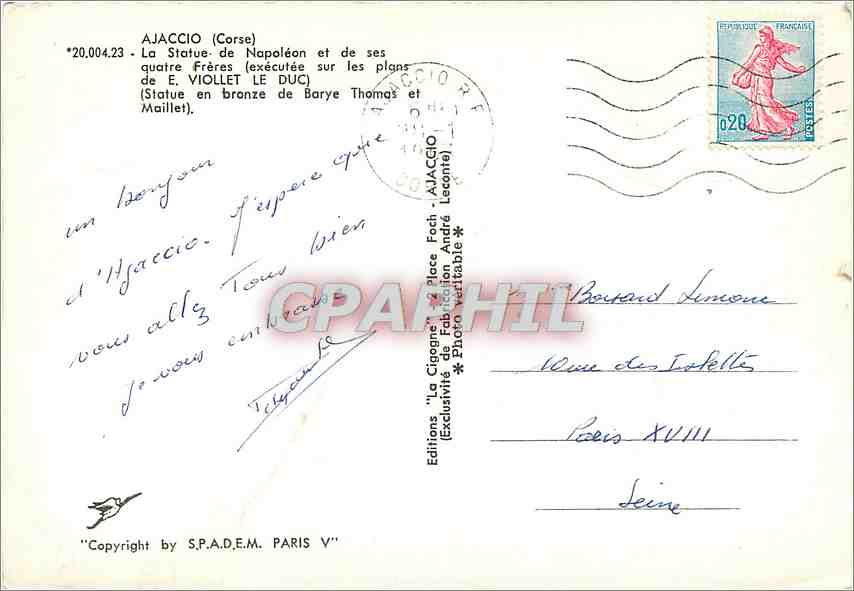 AJACCIO (Corse)
*20,004.23 - La Statue de Napoléon et de ses
quatre Frères (exécutée sur les plans
de E. VIOLLET LE DUC)
(Statue en bronze de Barye Thomas et
Maillet).
REPUBLIQUE FRANÇAISE
0.20
POSTES
AJACCIO R.P.
un bonjour
d'Ajaccio. J'espère que
vous allez Tous bien
je vous embrasse
Editions "La Cigogne" - 2 Place Foch - AJACCIO
(Exclusivité de Fabrication André Leconte)
* Photo véritable *
CPARPHIL
Simone
des Islettes
Paris XVIII
Seine
"Copyright by S.P.A.D.E.M. PARIS V"